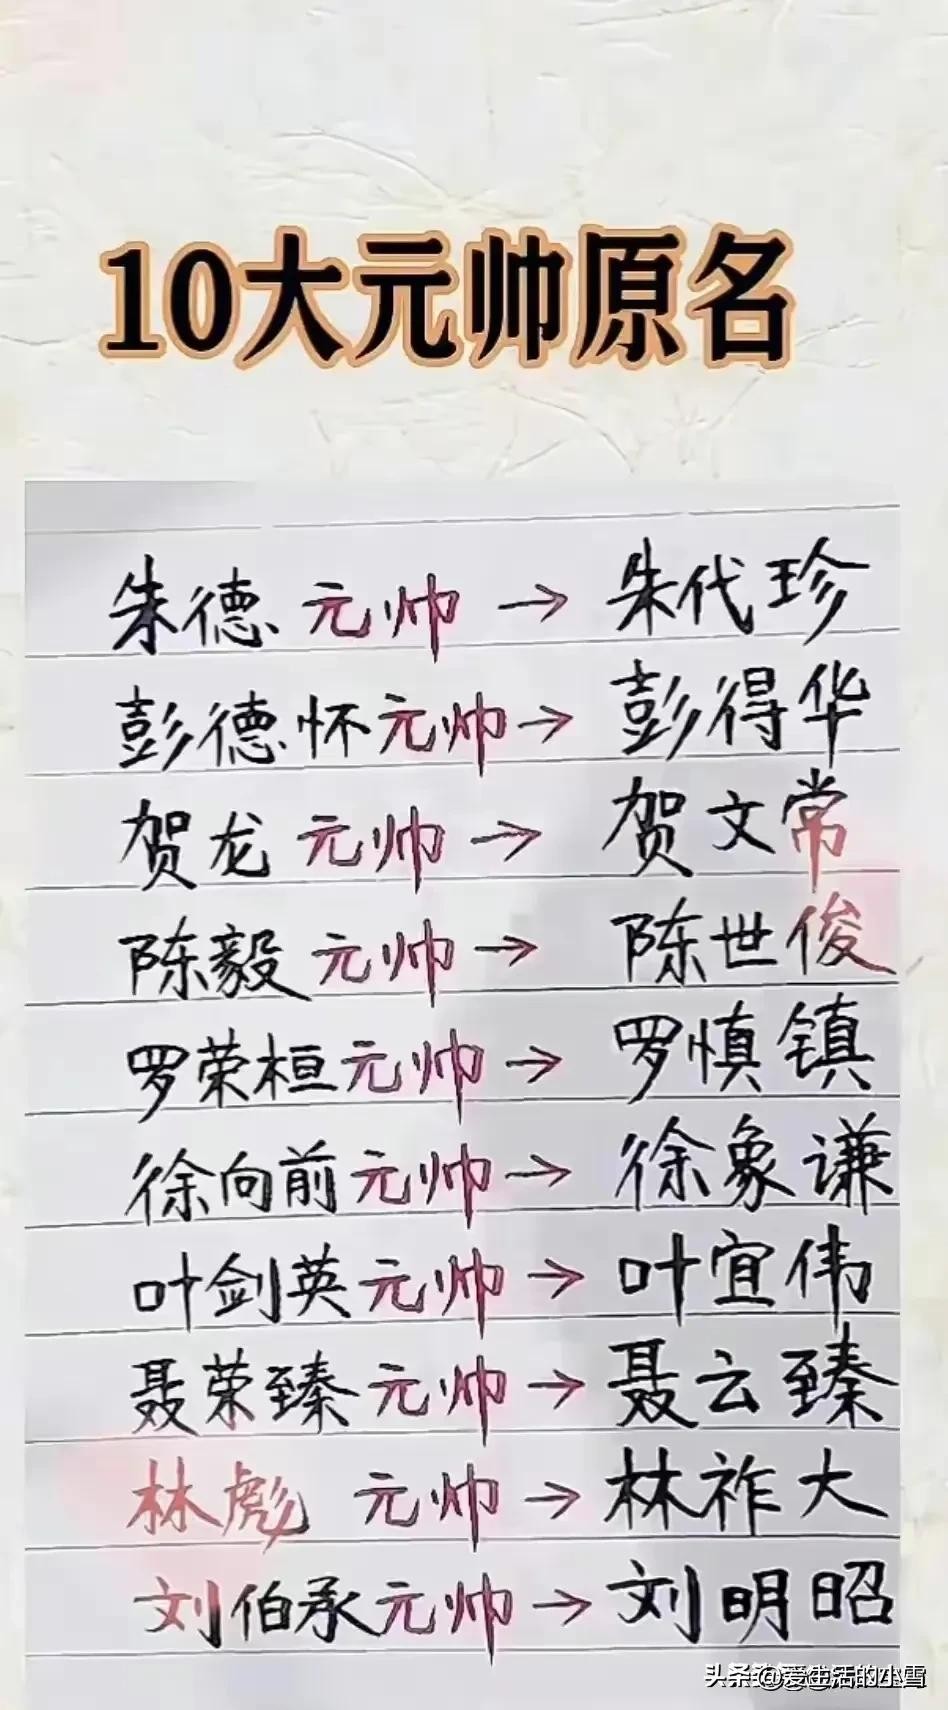 10大元帅原名
朱德 元帅 → 朱代珍
彭德怀元帅 → 彭得华
贺龙 元帅 → 贺文常
陈毅 元帅 → 陈世俊
罗荣桓元帅 → 罗慎镇
徐向前元帅 → 徐象谦
叶剑英元帅 → 叶宜伟
聂荣臻元帅 → 聂云臻
林彪 元帅 → 林祚大
刘伯承元帅 → 刘明昭
头条@爱生活的小雪